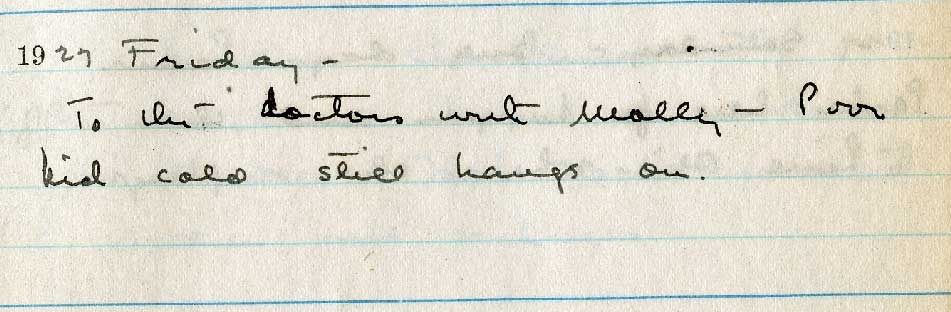 1927 Friday -
To the doctors with Molly - Poor
kid cold still hangs on.